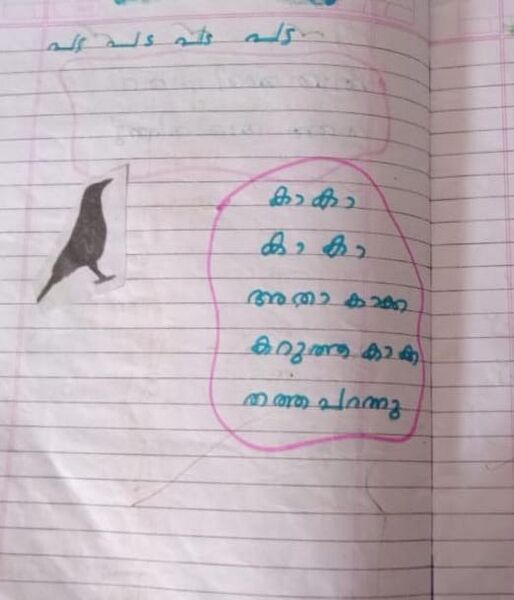 പട പട പട പട
കാ കാ
കാ കാ
അതാ കാക്ക
കറുത്ത കാക്ക
തത്ത പറന്നു